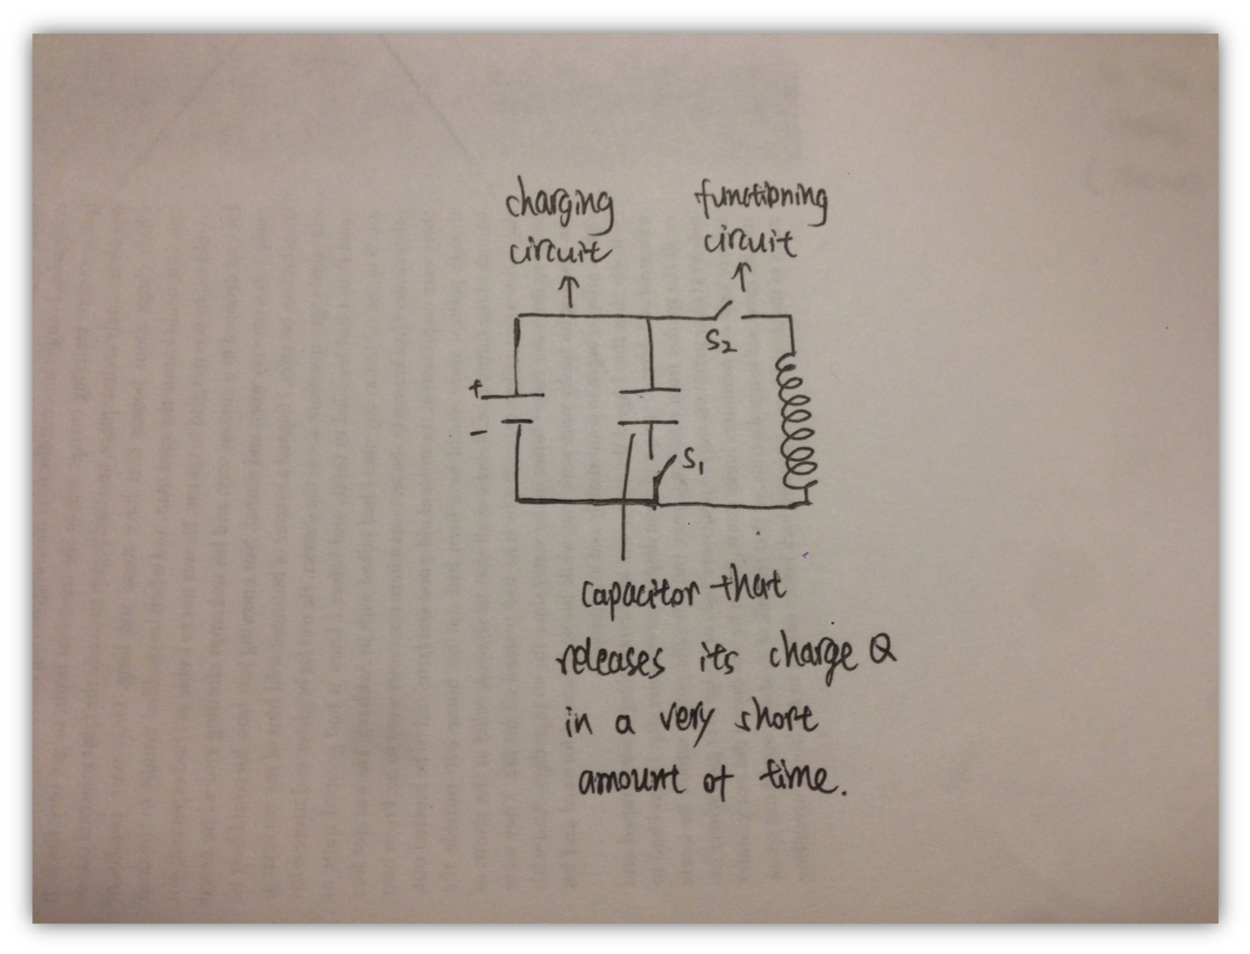 charging
circuit
functioning
circuit
S2
+
-
S1
capacitor that
releases its charge Q
in a very short
amount of time.